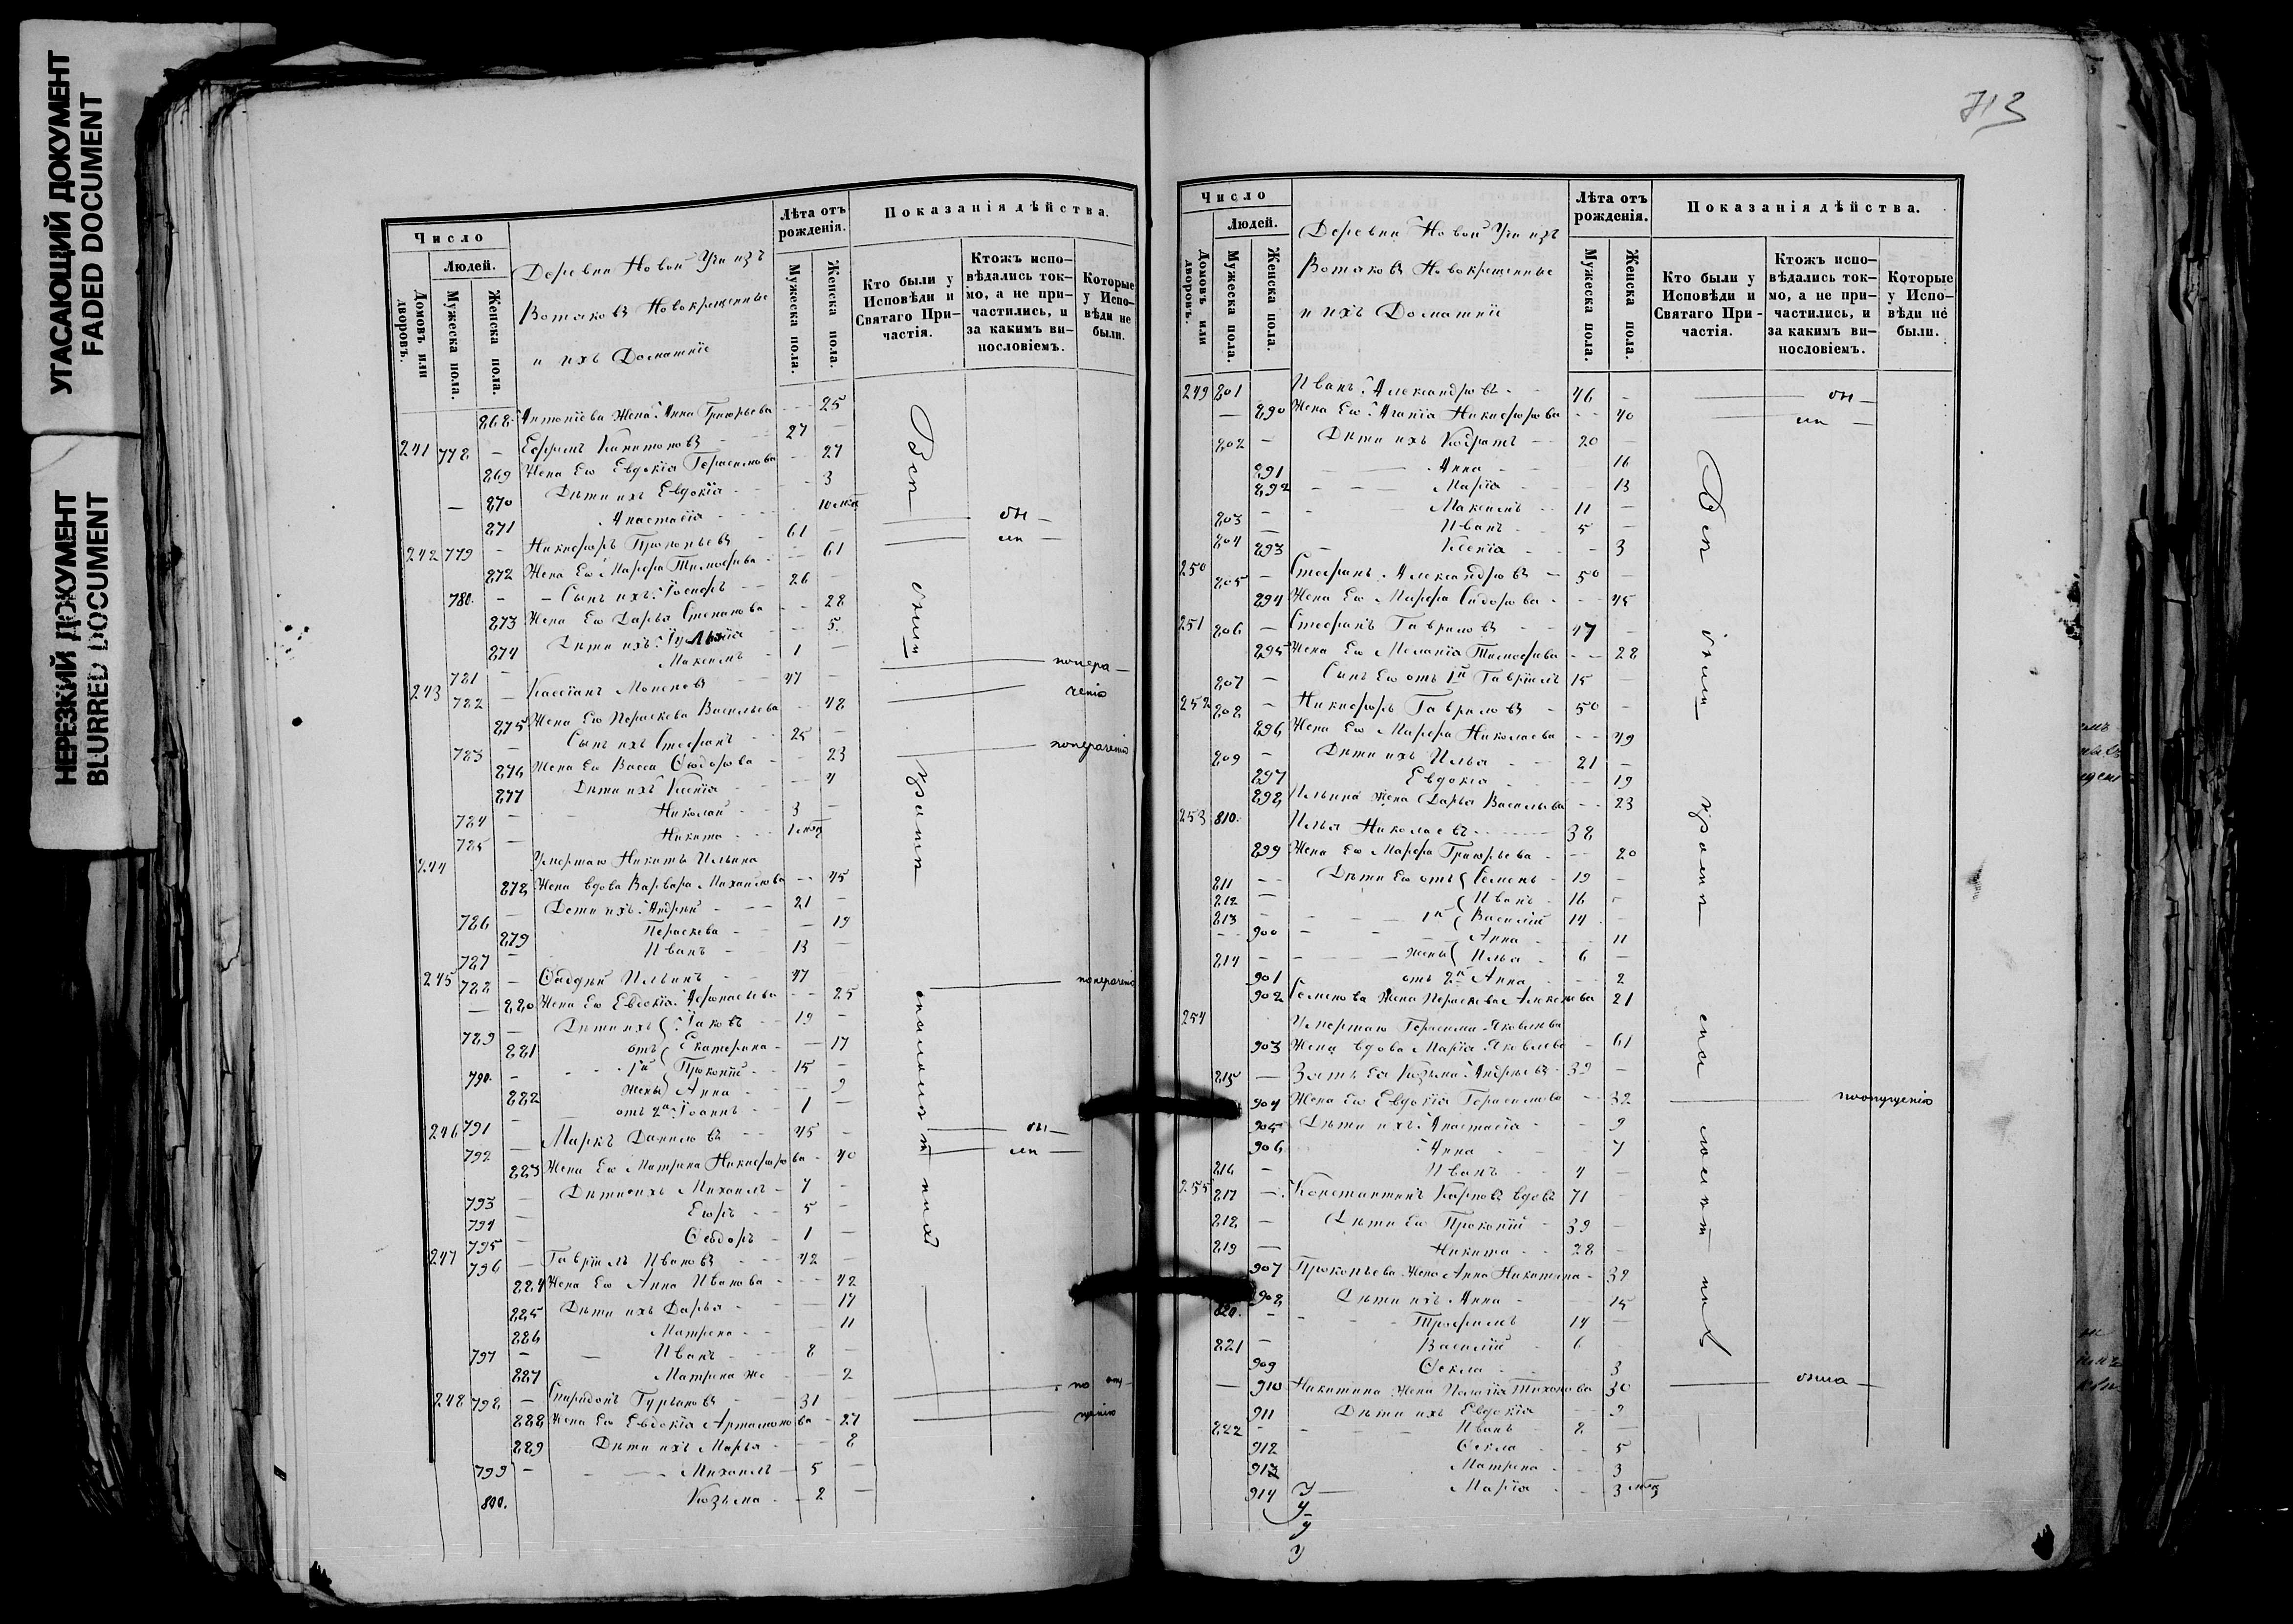 УГАСАЮЩИЙ ДОКУМЕНТ
FADED DOCUMENT
НЕРЕЗКИЙ ДОКУМЕНТ
BLURRED DOCUMENT
Число
Людей.
Домовъ или дворовъ.
Мужеска пола.
Женска пола.
Деревни Новой Учи изъ
Вотяковъ Новокрещенные
и ихъ Домашнiе
Лѣта отъ рожденія.
Мужеска пола.
Женска пола.
Показанія дѣйства.
Кто были у Исповѣди и Святаго Причастія.
Ктожъ исповѣдались токмо, а не причастились, и за какимъ винословіемъ.
Которые у Исповѣди не были.
868 Антонiева Жена Анна Григорьева 25
241 778 Ефремъ Капитоновъ 27
869 Жена Его Евдокiя Герасимова 27
870 Дѣти ихъ Евдокiя 3
871 Анастасiя
242 779 Никифоръ Прокопьевъ 61
872 Жена Его Марфа Тимофѣева 61
780 Сынъ ихъ Iосифъ 26
873 Жена Его Дарья Степанова 28
874 Дѣти ихъ Iулiанiя 5
781 Максимъ 1
243 782 Кассiанъ Моисеевъ 47
875 Жена Его Параскева Васильева 48
783 Сынъ ихъ Стефанъ 25
876 Жена Его Васса Сидорова 23
877 Дѣти ихъ Ксенiя 4
784 Николай 3
785 Никита
244 Умершаго Никиты Ильина
878 Жена вдова Варвара Михайлова 45
786 Дети ихъ Андрей 21
879 Параскева 19
787 Иванъ 13
245 788 Фаддей Ильинъ 47
880 Жена Его Евдокiя Афонасьева 25
789 Дѣти ихъ Iаковъ 19
881 отъ Екатерина 17
790 1й Прокопiй 15
882 жены Анна 9
791 отъ 2й Iоаннъ 1
246 792 Маркъ Даниловъ 45
883 Жена Его Матрена Никифорова 40
793 Дѣти ихъ Михаилъ 7
794 Егоръ 5
795 Федоръ 1
247 796 Гаврiилъ Ивановъ 42
884 Жена Его Анна Иванова 42
885 Дѣти ихъ Дарья 17
886 Матрена 11
797 Иванъ 8
887 Матрена же 2
248 798 Спиридонъ Гурьяновъ 31
888 Жена Его Евдокiя Артамонова 27
889 Дѣти ихъ Марья 8
799 Михаилъ 5
800 Козьма 2
713
Число
Людей.
Домовъ или дворовъ.
Мужеска пола.
Женска пола.
Деревни Новой Учи изъ
Вотяковъ Новокрещенные
и ихъ Домашнiе
Лѣта отъ рожденія.
Мужеска пола.
Женска пола.
Показанія дѣйства.
Кто были у Исповѣди и Святаго Причастія.
Ктожъ исповѣдались токмо, а не причастились, и за какимъ винословіемъ.
Которые у Исповѣди не были.
249 801 Иванъ Александровъ 46
890 Жена Его Агапiя Никифорова 40
802 Дѣти ихъ Кодратъ 20
891 Анна 16
892 Марiя 13
803 Максимъ 11
804 Иванъ 5
893 Ксенiя 3
250 805 Стефанъ Александровъ 50
894 Жена Его Марфа Сидорова 45
251 806 Стефанъ Гавриловъ 47
895 Жена Его Меланiя Тимофѣева 28
807 Сынъ Его отъ 1й Гаврiилъ 15
252 808 Никифоръ Гавриловъ 50
896 Жена Его Марфа Николаева 49
809 Дѣти ихъ Илья 21
897 Евдокiя 19
898 Ильина жена Дарья Васильева 23
253 810 Илья Николаевъ 38
899 Жена Его Марфа Григорьева 20
811 Дѣти Его отъ Семенъ 19
812 Иванъ 16
813 1й Василiй 14
900 Анна 11
814 жены Илья 6
901 отъ 2й Анна 2
902 Семенова жена Параскева Алексѣева 21
254 Умершаго Герасима Яковлева
903 Жена вдова Марiя Яковлева 61
815 Зять Ея Козьма Андреевъ 39
904 Жена Его Евдокiя Герасимова 32
905 Дѣти ихъ Анастасiя 9
906 Анна 7
816 Иванъ 4
255 817 Константинъ Карповъ вдовъ 71
818 Дѣти Его Прокопiй 39
819 Никита 28
907 Прокопьева жена Анна Никитина 39
908 Дѣти ихъ Анна 15
820 Трофимъ 14
821 Василiй 6
909 Фекла 3
910 Никитина жена Пелагiя Тихонова 30
911 Дѣти ихъ Евдокiя 9
822 Иванъ 8
912 Фекла 5
913 Матрена 3
914 Марiя 3